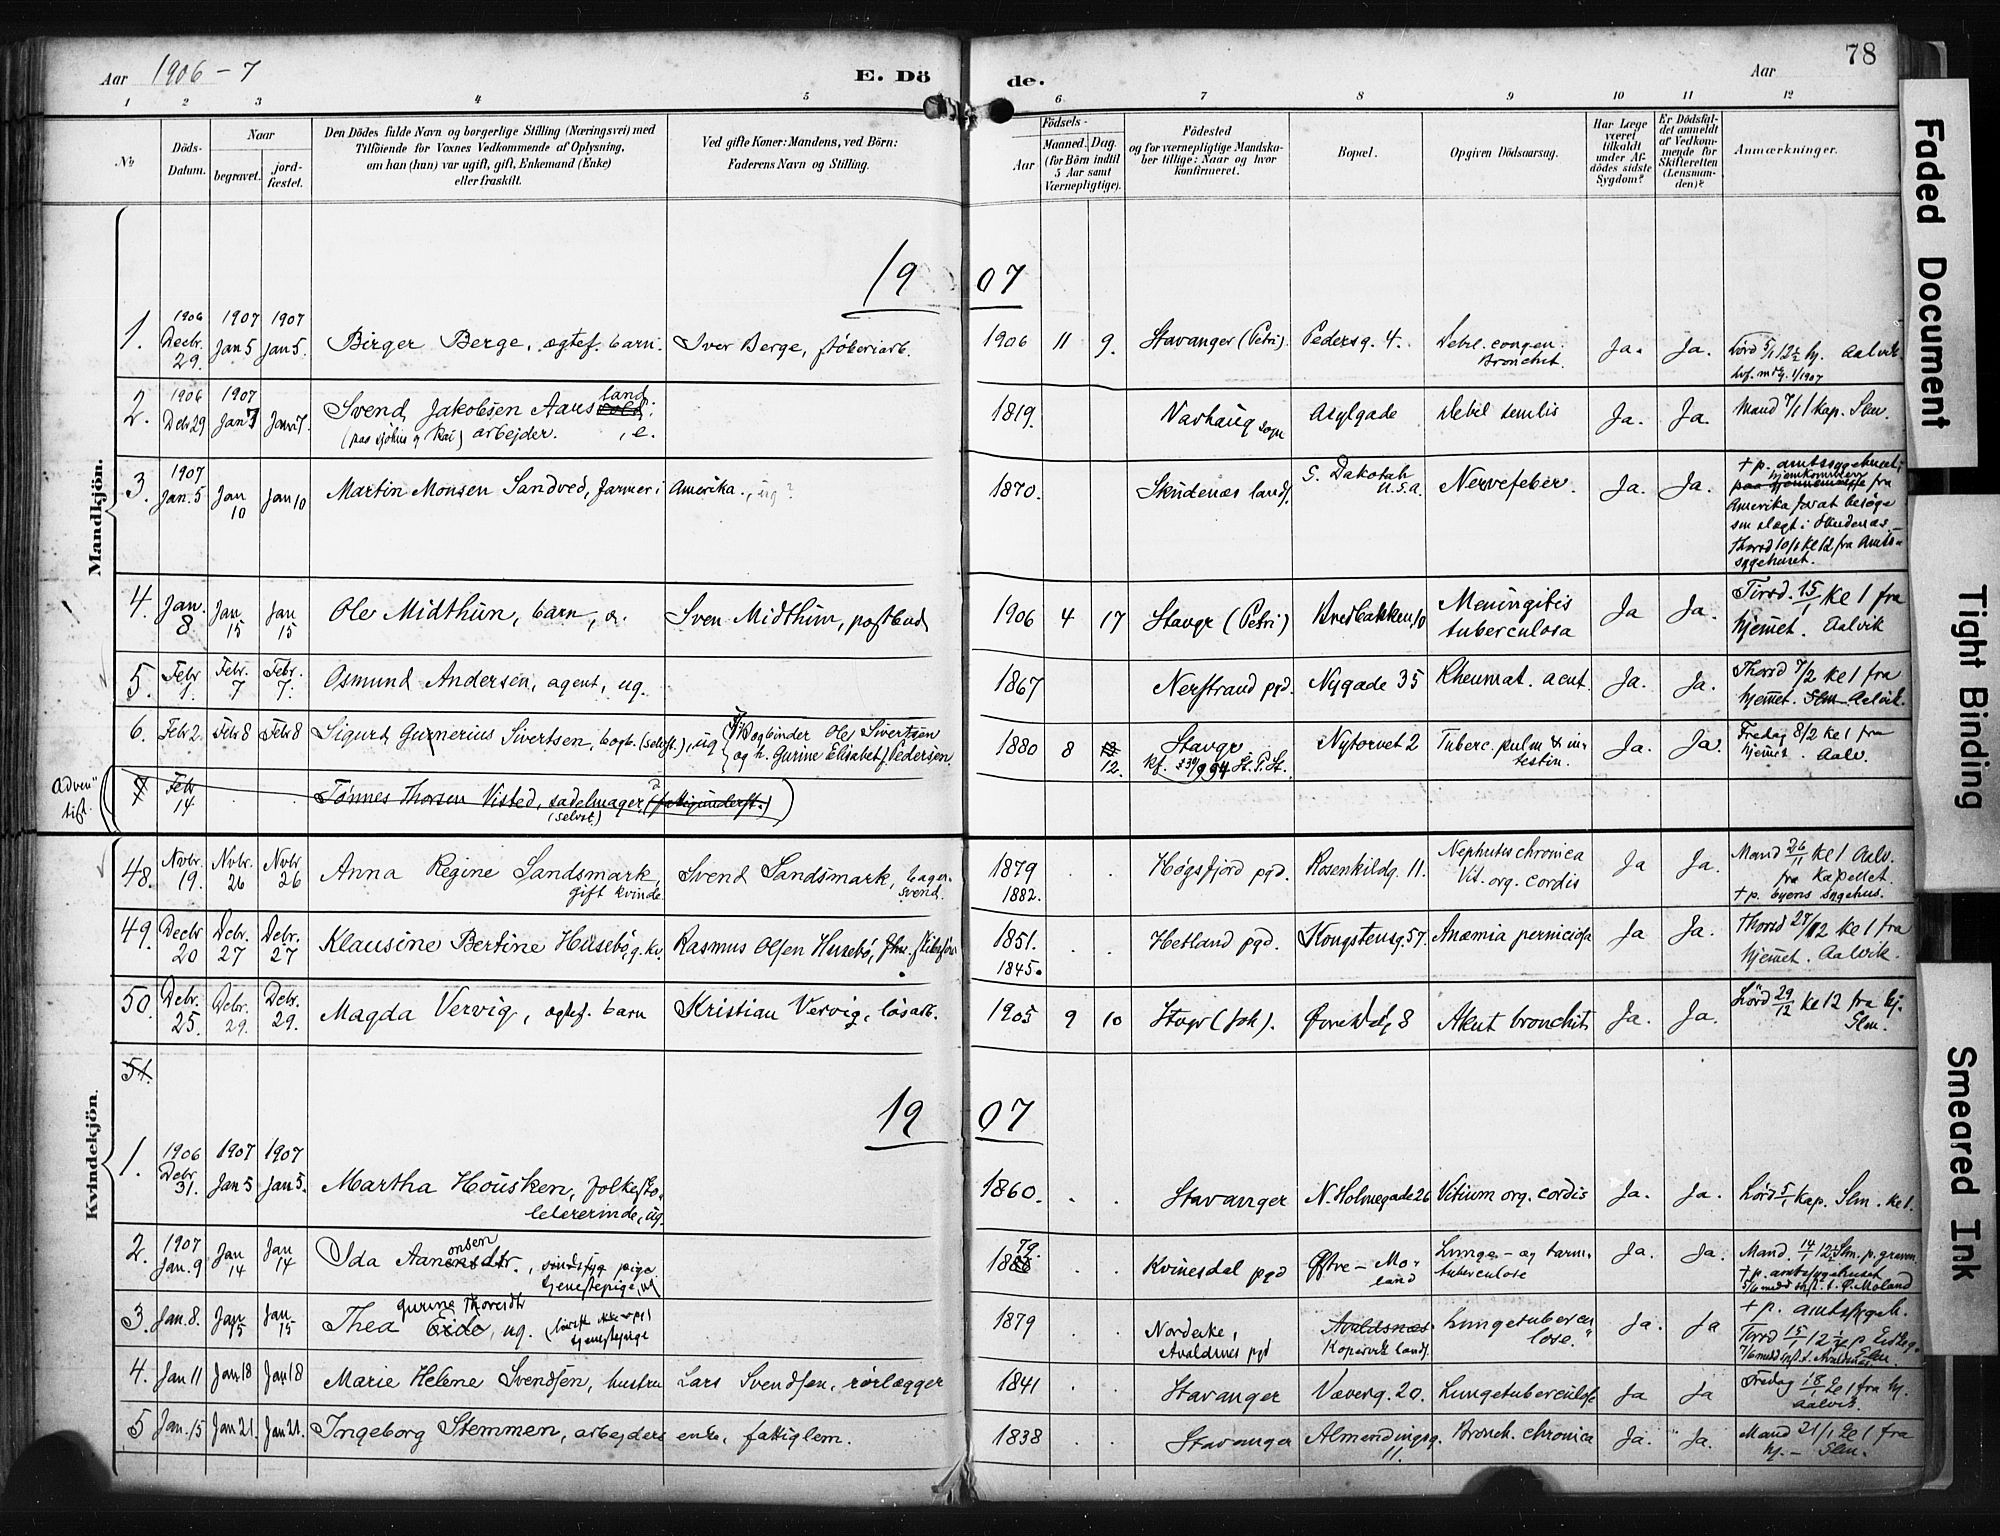 Aar 1906-7 E. Dö de. Aar 78
1 2 3 4 5 6 7 8 9 10 11 12
No
Döds-
Datum.
Naar
begravet.
jord-
fæstet.
Den Dödes fulde Navn og borgerlige Stilling (Næringsvei) med
Tilföiende for Voxnes Vedkommende af Oplysning,
om han (hun) var ugift, gift, Enkemand (Enke)
eller fraskilt.
Ved gifte Koner: Mandens, ved Börn:
Faderens Navn og Stilling.
Födsels-
Aar
Maaned. Dag.
(for Börn indtil
5 Aar samt
Værnepligtige).
Födested
og for værnepligtige Mandska-
ber tillige: Naar og hvor
konfirmeret.
Bopæl.
Opgiven Dödsaarsag.
Har Læge
været
tilkaldt
under Af-
dödes sidste
Sygdom?
Er Dödsfal-
det anmeldt
af Vedkom-
mende for
Skifteretten
(Lensman-
den)?
Anmærkninger.
Mandkjön.
1907
1. 1906 Decbr. 29. 1907 Jan 5 1907 Jan 5. Birger Berge, ægtef. barn. Iver Berge, støberiarb. 1906 11 9. Stavanger (Petri). Pedersg. 4. Debil. congen. Bronchit. Ja. Ja. Lørd 5/1 12½ hj. Aalvik.
2. 1906 Debr 29 1907 Jan 7 Jan 7. Svend Jakobsen Aarsland, e.
arbejder.
1819. Varhaug sogn Asylgade debil senilis Ja. Ja. Mand 7/1 1 kap. Slm.
3. 1907 Jan. 5 Jan 10 Jan 10 Martin Monsen Sandved, farmer i Amerika., ug? 1870. Skudenæs lands. S. Dakotah U.S.A. Nervefeber. Ja. Ja. + p. amtssygehuset,
hjemkommen fra
Amerika for at besøge
sin slægt i Skudenæs.
Thorsd 10/1 kl 12 fra Amts-
sygehuset.
4. Jan. 8 Jan 15 Jan 15 Ole Midthun, barn, æ. Sven Midthun, postbud 1906 4 17 Stavgr (Petri) Bredbakken 10 Meningitis tuberculosa Ja Ja. Tirsd. 15/1 kl 1 fra
hjemmet. Aalvik
5. Febr 1. Febr. 7 Febr. 7. Osmund Andersen, agent, ug. 1867 Nerstrand pgd. Nygade 35 Rheumat. acut. Ja. Ja. Thorsd 7/2 kl 1 fra
hjemmet. Slm. Aalvik.
6. Febr 2. Febr 8 Febr 8 Sigurd Gunnerius Sivertsen, bogb. (selvst.), ug Bogbinder Ole Sivertsen
og h. Gurine Elisabet f. Pedersen
1880 8 12. Stavgr. Nytorvet 2 Tuberc. pulm & in-
testin. Ja. Ja. Fredag 8/2 kl 1 fra
hjemmet. Aalv.
Adven-
tist.
7 Febr 14 Tønnes Thorsen Visted, sadelmager (fattigunderst.)
(selvst.)
Kvindekjön.
48. Nvbr. 19. Nvbr. 26 Nvbr 26 Anna Regine Sandsmark,
gift kvinde
Svend Sandsmark, bager-
svend.
1879
1882.
Høgsfjord pgd. Rosenkildg. 11. Nephritis chronica
Vit. org. cordis Ja Ja. Mand 26/11 kl 1 Aalv.
fra kapellet.
+ p. byens sygehus.
49. Decbr 20 Debr. 27 Debr. 27 Klausine Bertine Husebø, g. kv. Rasmus Olsen Husebø, 1851.
1845.
Hetland pgd. Kongstensg. 57. Anæmia perniciosa Ja Ja. Thorsd 27/12 kl 1 fra
hjemmet. Aalvik.
50. Debr. 25. Debr. 29. Debr. 29. Magda Vervig, ægtef. barn Kristian Vervig, løsarb. 1905 9 10 Stvgr (Joh). 8 Akut bronchit Ja. Ja. Lørd 29/12 kl 12 fra hj.
Slm.
51.
1907
1. 1906 Debr. 31. 1907 Jan 5 1907 Jan 5. Martha Housken, folkesko-
lelærerinde, ug.
1860. Stavanger N. Holmegade 26 Vitium org. cordis Ja. Ja. Lørd 5/1 kap. Slm. kl 1.
2. 1907 Jan. 9 Jan 14 Jan 14 Ida Aanonsen, sindssyg pige
tjenestepige, ug
1879. Kvinesdal pgd Østre-Mo-
land Lunge- og tarm-
tuberculose Ja. Ja. Mand. 14/1 12½ Slm. p. graven
+ p. amtssygehuset
3. Jan. 8. Jan 15 Jan 15 Thea Gurine Thorsdtr Eide, ug.
tjenestepige
1879 Nordeike,
Avaldsnes pgd Avaldsnæs
Kopervik lands. Lungetubercu
lose. Ja. Ja + p. amtssygeh.
4. Jan 11 Jan 18 Jan 18 Marie Helene Svendsen, hustru Lars Svendsen, rørlægger 1841 Stavanger Væverg. 20. Lungetuberculose Ja Ja Fredag 18/1 kl 1 fra hj.
Aalvik.
5 Jan. 15 Jan 21. Jan 21. Ingeborg Stemmen, arbejders enke, fattiglem. 1838 Stavanger Almendingsg.
11. Bronch. chronica Ja. Ja. Mand 21/1 kl 1 fra
hj. - Slm.
Faded Document
Tight Binding
Smeared Ink